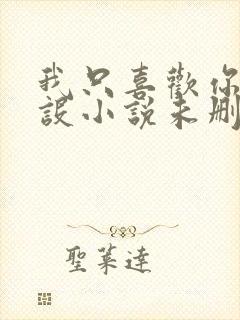 我只喜歡你
設小說未刪
聖萊達